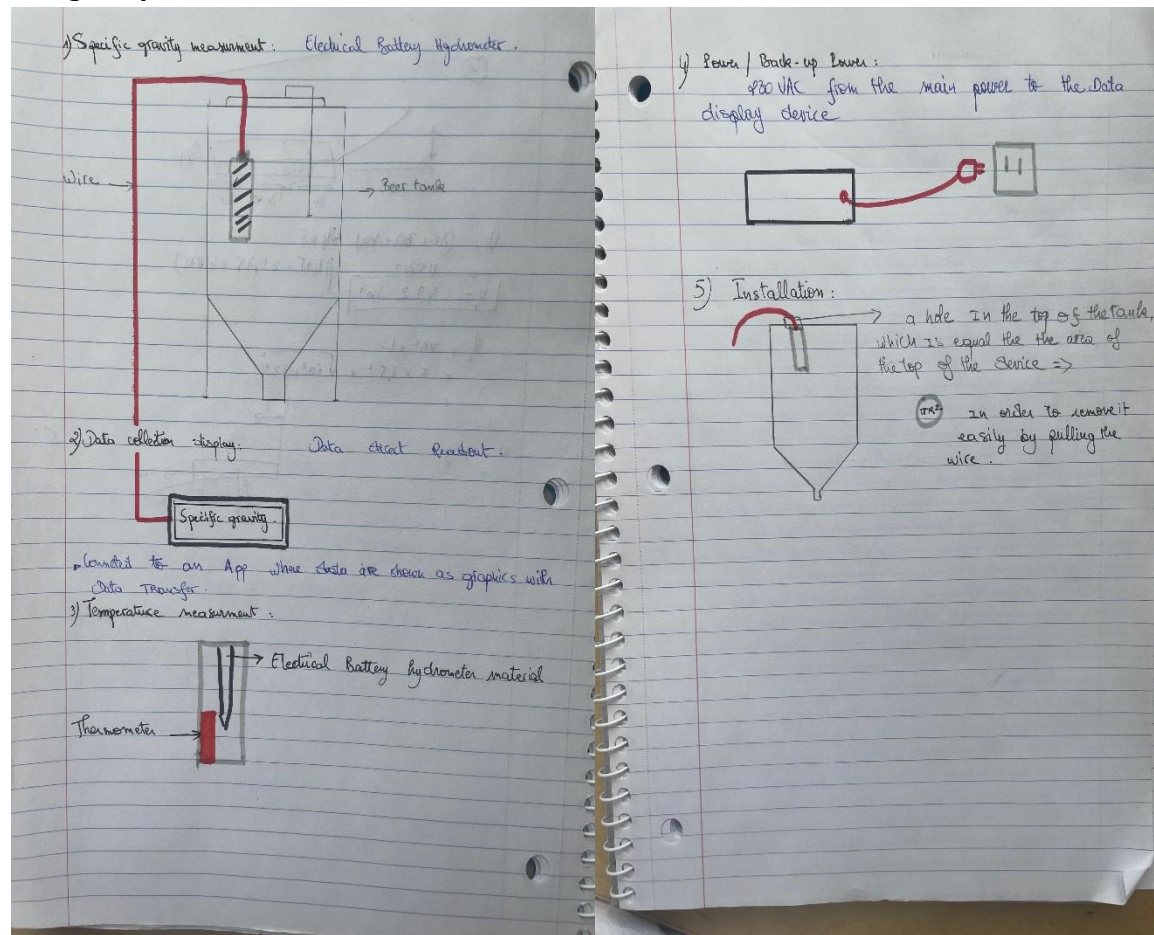 1) Specific gravity measurment: Electrical Battery Hydrometer.
Wire
Beer tank
2) Data collection display: Data direct Readout.
Specific gravity.
Connected to an App where data are shown as graphics with
Data Transfer.
3) Temperature measurment:
Electrical Battery hydrometer material
Thermometer
4) Power / Back-up Power:
230 VAC from the main power to the Data
display device
5) Installation:
a hole In the top of the tank,
which is equal the the area of
the top of the device =>
πR² In order to remove it
easily by pulling the
wire.